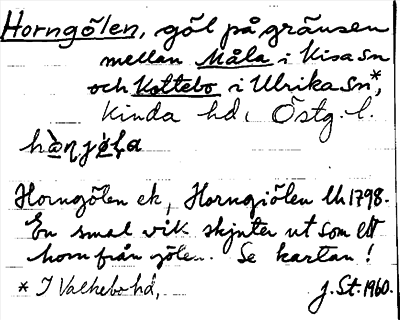 Horngölen, göl på gränsen
mellan Måla i Kisa sn
och Kottebo i Ulrika sn*,
Kinda hd, Östg. l.
Horngölen ek, Horngiölen Uh 1798.
En smal vik skjuter ut som ett
horn från gölen. Se kartan!
* I Valkebo hd,
J. St. 1960.